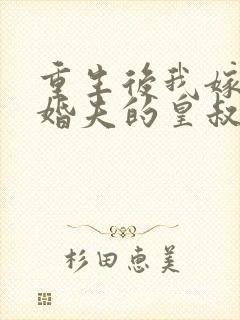 重生後我嫁
婚夫的皇叔
杉田惠美